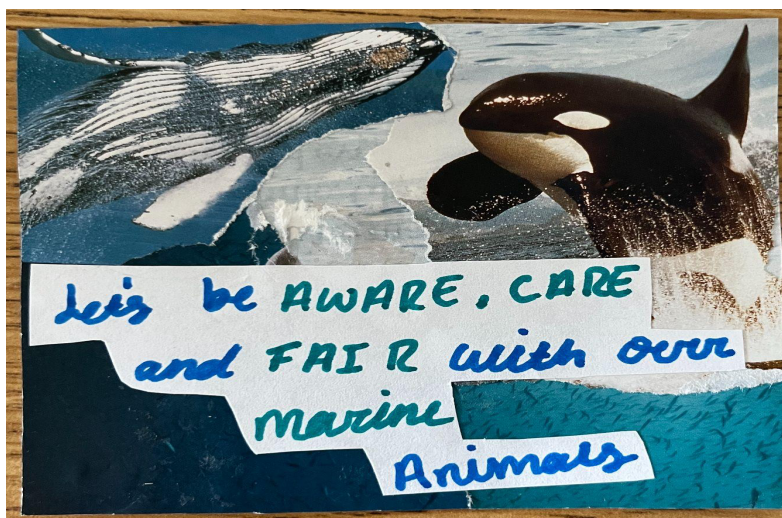 Let's be AWARE. CARE
and FAIR with our
Marine
Animals